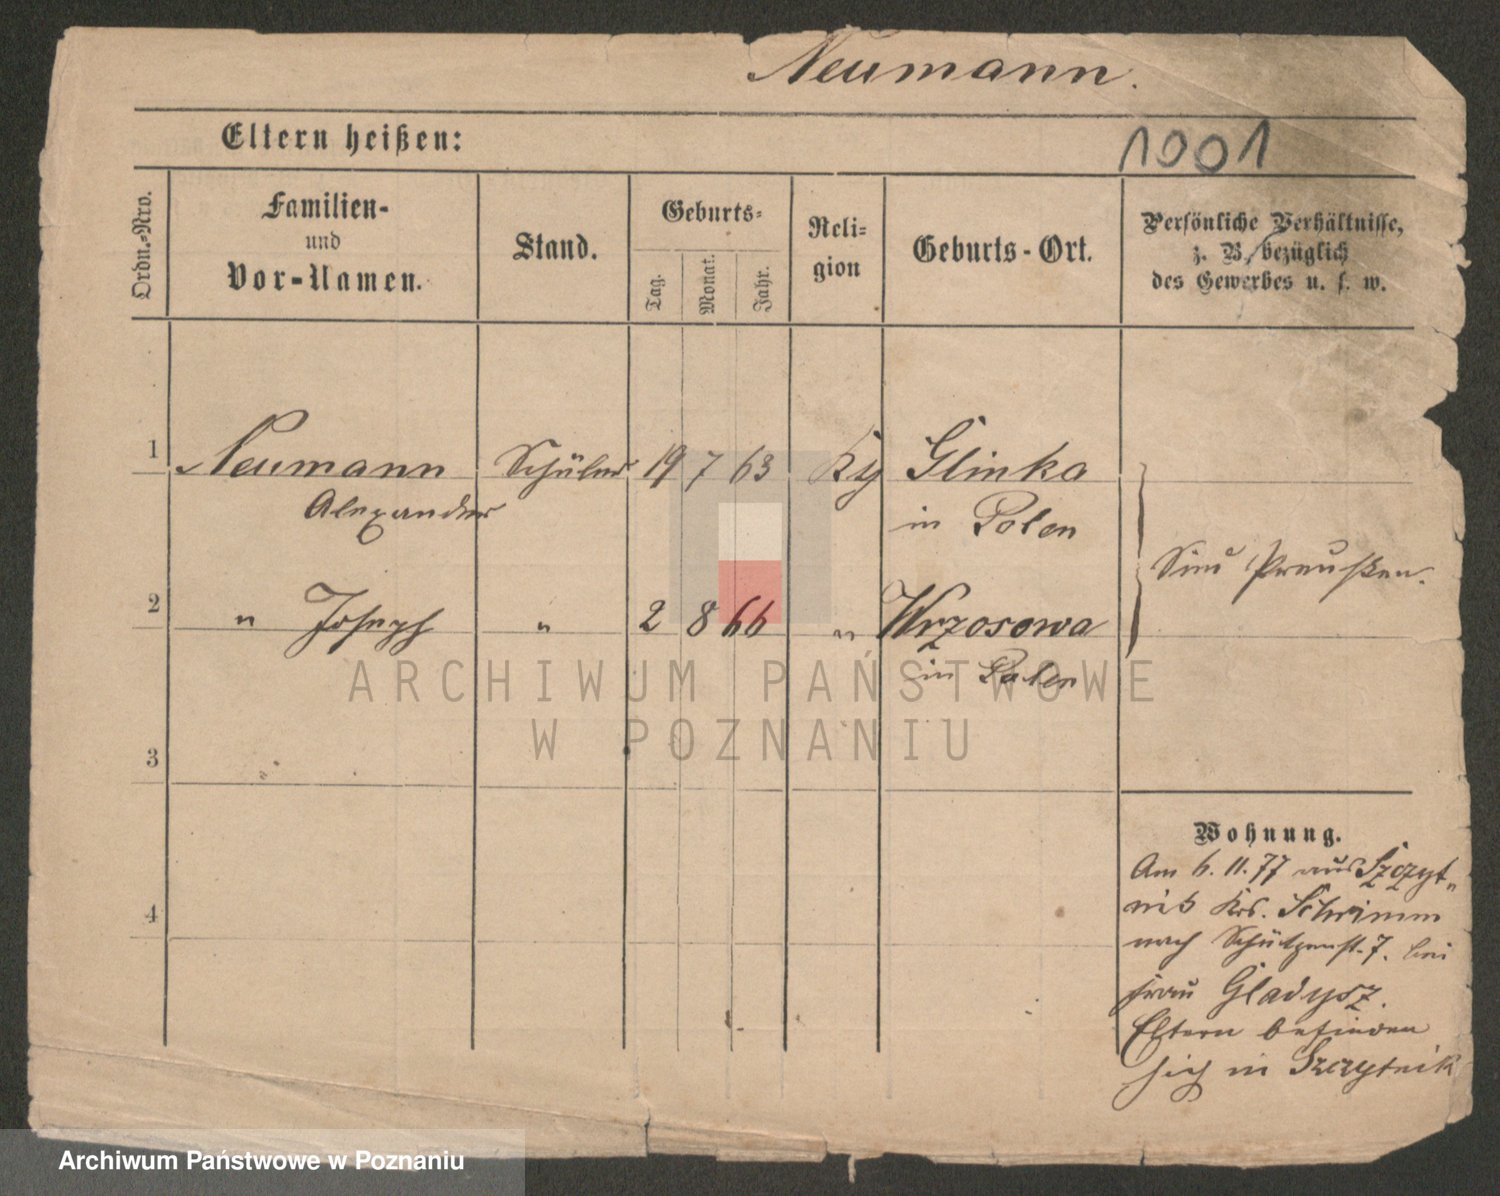 Neumann.
Eltern heißen:
1001
Ordn.-Nro.
Familien-
und
Vor-Namen.
Stand.
Geburts-
Tag.
Monat.
Jahr.
Reli-
gion
Geburts-Ort.
Persönliche Verhältnisse,
z. B. bezüglich
des Gewerbes u. s. w.
1 Neumann Schüler 19 7 63 Glinka
Alexander in Polen
Sind Preußen.
2 " Joseph " 2 8 66 " Wrzosowa
in Polen
ARCHIWUM PAŃSTWOWE
W POZNANIU
3
4
Wohnung.
Am 6.11.77 aus Szczyt-
nik Krs. Schrimm
nach Schützenst. 7. bei
Frau Gladysz.
Eltern befinden
sich in Szczytnik
Archiwum Państwowe w Poznaniu